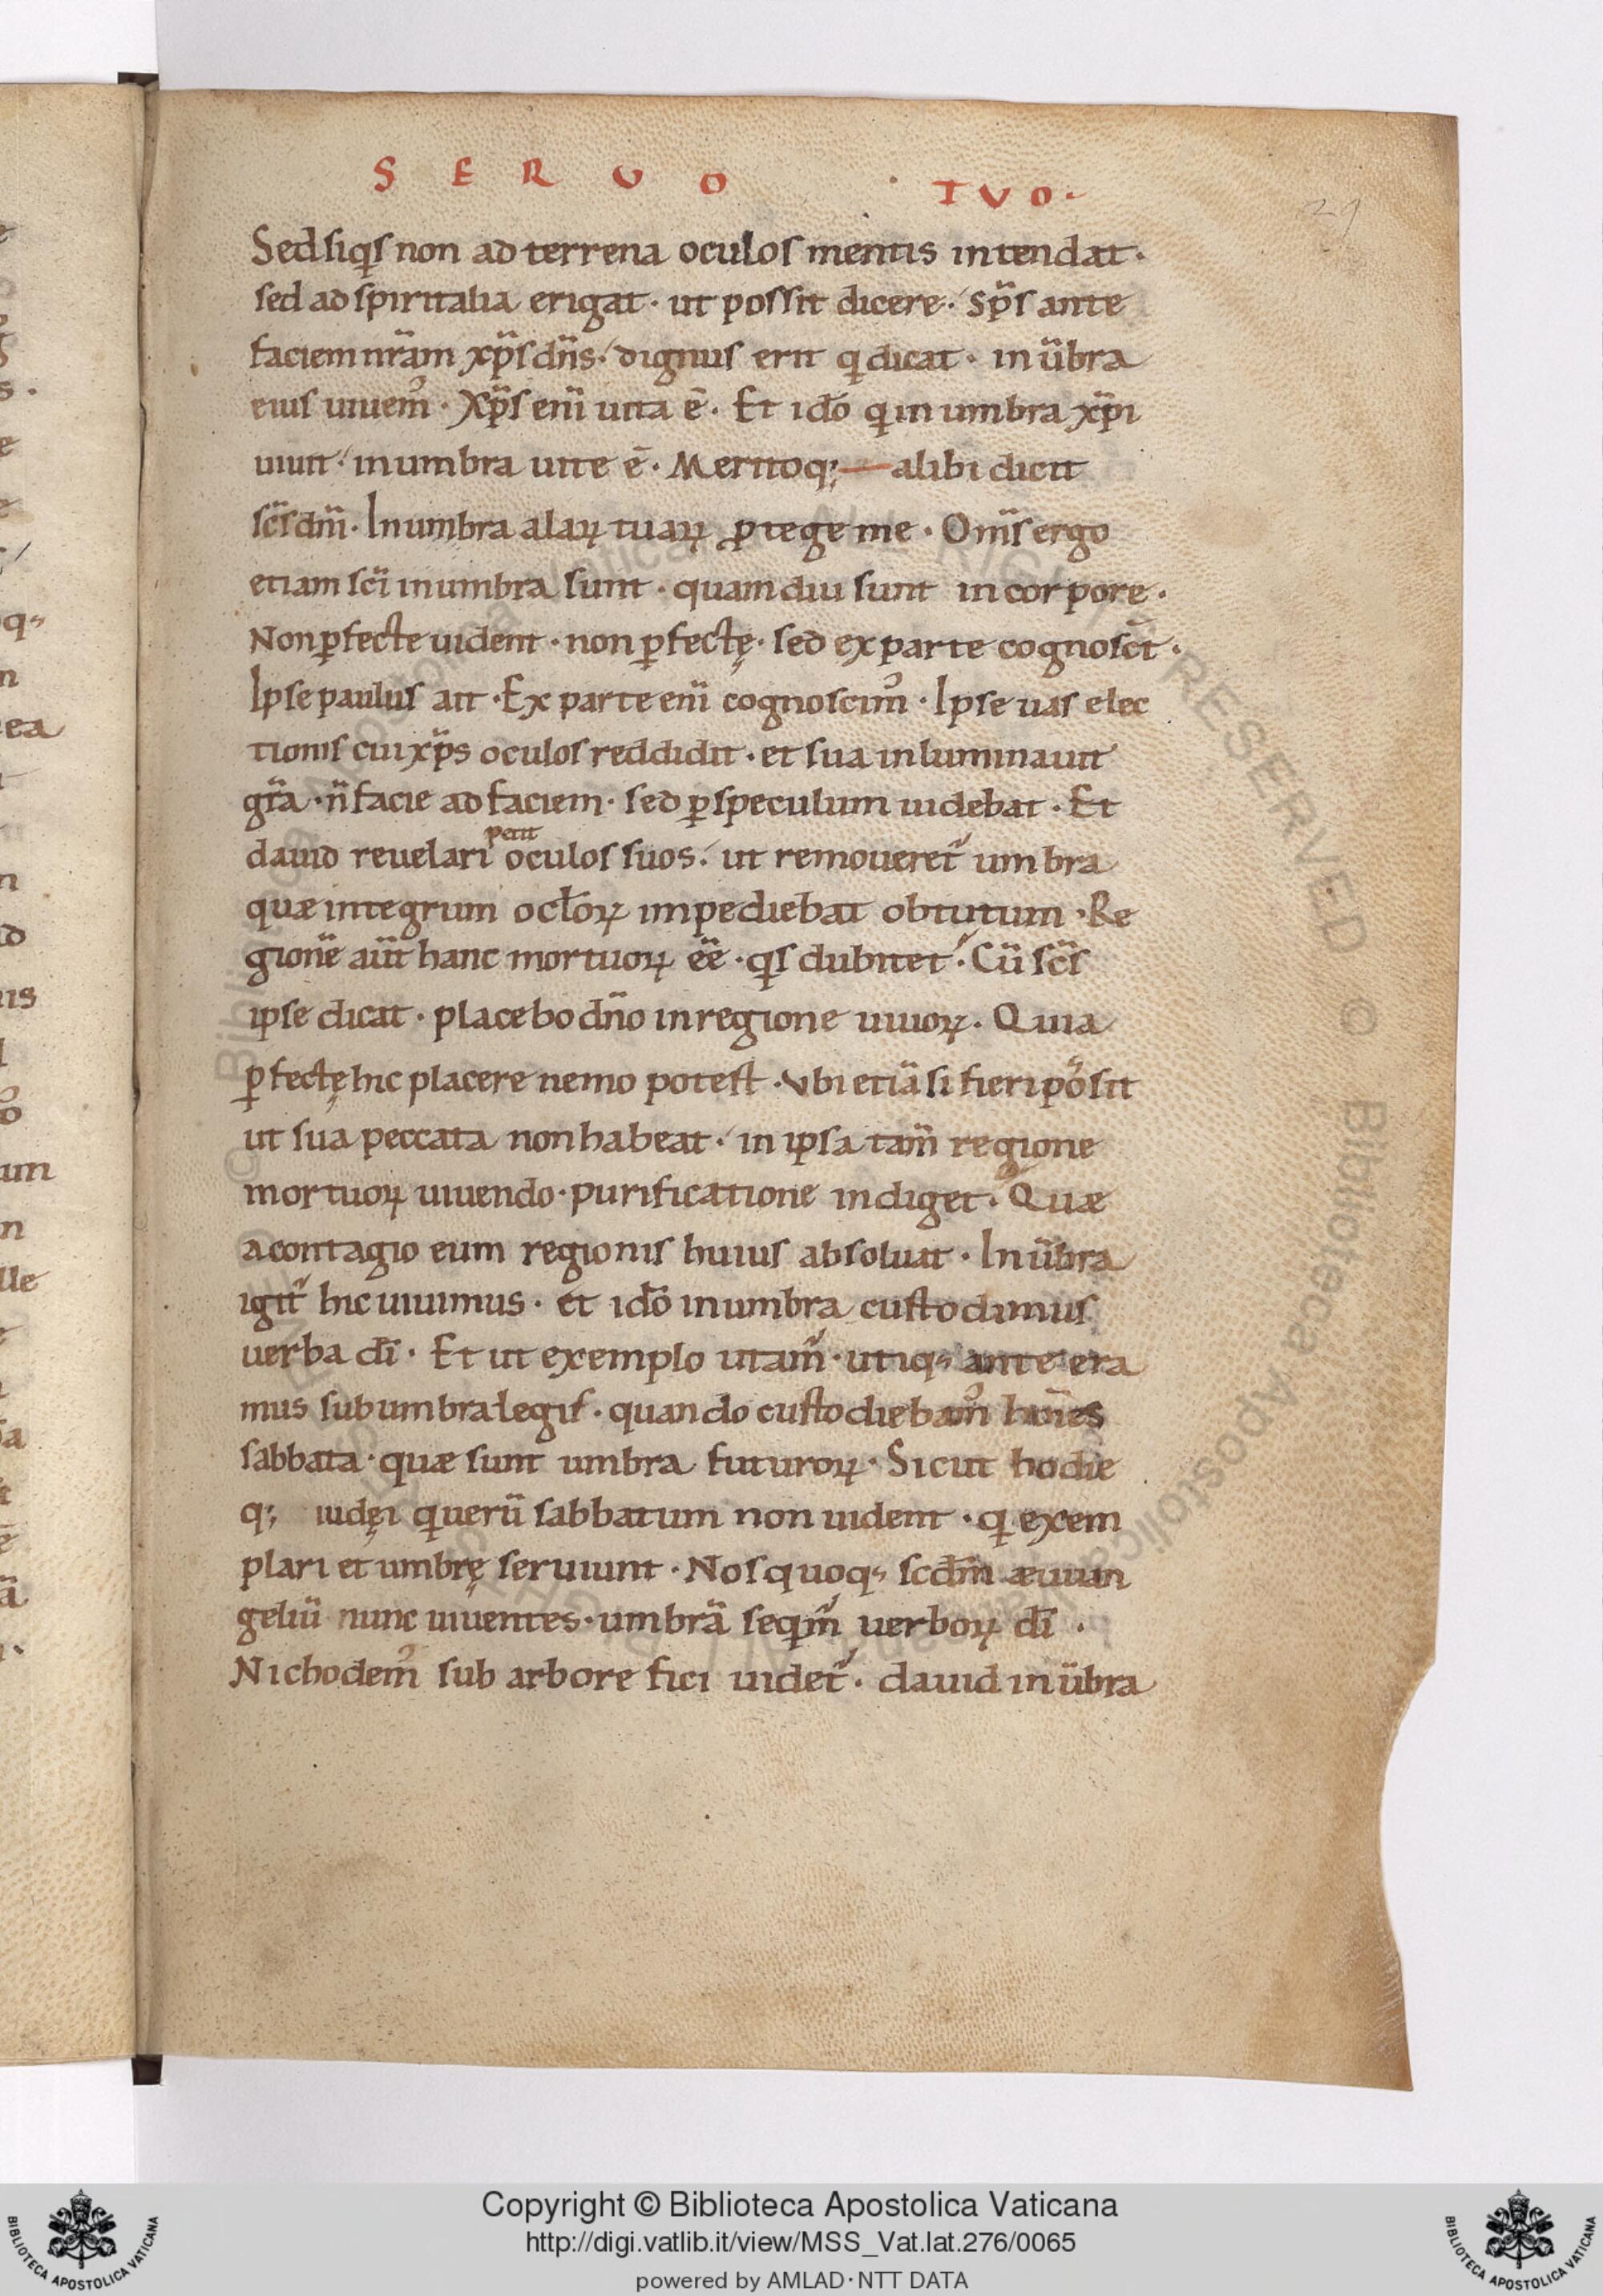 S E R U O TVO.
29
Sed siq̄s non ad terrena oculos mentis intendat·
sed ad spiritalia erigat· ut possit dicere· sp̄s ante
faciem nr̄am xp̄s dn̄s· dignus erit q̄ dicat· in ūbra
eius uiuem᾿· Xp̄s enī uita ē· Et idō q̄ in umbra xp̄i
uiuit· in umbra uite ē· Meritoq; alibi dicit
sc̄s dn̄i· In umbra alaꝝ tuaꝝ ꝓtege me· Om̄s ergo
etiam sc̄i in umbra sunt· quamdiu sunt in corpore·
Non ꝑfecte uident· non ꝑfectę· sed ex parte cognosc̄t·
Ipse paulus ait· Ex parte enī cognoscim᾿· Ipse uas elec
tionis cui xp̄s oculos reddidit· et sua inluminauit
gr̄a· n̄ facie ad faciem· sed ꝑ speculum uidebat· Et
petit
dauid reuelari oculos suos· ut remoueret᾿ umbra
quæ integrum oclōꝝ impediebat obtutum· Re
gionē aūt hanc mortuoꝝ eē· q̄s dubitet· Cū sc̄s
ipse dicat· placebo dn̄o in regione uiuoꝝ· Quia
ꝑfectę hic placere nemo potest· Vbi etiā si fieri posit
ut sua peccata non habeat· in ipsa tam̄ regione
mortuoꝝ uiuendo· purificatione indiget· Quæ
a contagio eum regionis huius absoluat· In ūbra
igit᾿ hic uiuimus· et idō in umbra custodimus
uerba dī· Et ut exemplo utam᾿· utiq; ante era
mus sub umbra legis· quando custodiebam᾿ hm̄es
sabbata· quæ sunt umbra futuroꝝ· Sicut hodie
q; iudęi q̄ uerū sabbatum non uident· q̄ exem
plari et umbrę seruiunt· Nos quoq; scd̄m æuuan
geliū nunc uiuentes· umbrā seqm᾿ uerboꝝ dī·
Nichodem᾿ sub arbore fici uidet᾿· dauid in ūbra
Copyright © Biblioteca Apostolica Vaticana
http://digi.vatlib.it/view/MSS_Vat.lat.276/0065
powered by AMLAD·NTT DATA
BIBLIOTECA APOSTOLICA VATICANA
BIBLIOTECA APOSTOLICA VATICANA